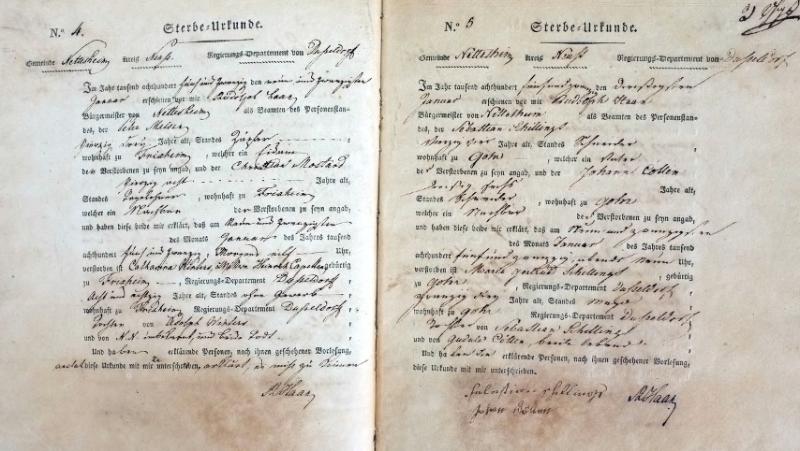 N.º 4. Sterbe-Urkunde.
Gemeinde Nettesheim Kreis Neuß. Regierungs-Departement von Düsseldorf
Im Jahr tausend achthundert fünf und zwanzig den neun und zwanzigsten
Januar erschienen vor mir Haan
Bürgermeister von Nettesheim als Beamten des Personenstan-
des, der
vierzig drey Jahr alt, Standes
wohnhaft zu Frixheim, welcher ein Eidam
der Verstorbenen zu seyn angab, und der Christian Mostard
vierzig acht Jahre alt,
Standes Tagelöhner, wohnhaft zu Frixheim
welcher ein Nachbar der Verstorbenen zu seyn angab;
und haben diese beide mir erklärt, daß am neun und zwanzigsten
des Monats Januar des Jahres tausend
achthundert fünf und zwanzig Morgens Uhr,
verstorben ist Catharina Winters, Wittwe Heinrich gebürtig
zu Frixheim, Regierungs-Departement Düsseldorf
Acht und achtzig Jahre alt, Standes ohne Gewerb
wohnhaft zu Frixheim Regierungs-Departement Düsseldorf
Tochter von Adolph Winters
und von N.N. unbekannt, und beide todt.
Und haben erklärende Personen, nach ihnen geschehener Vorlesung,
diese Urkunde mit mir unterschrieben, erklärt, es nicht zu können
Haan
N.º 5 Sterbe-Urkunde.
Gemeinde Nettesheim Kreis Neuß Regierungs-Departement von Düsseldorf
Im Jahr tausend achthundert fünf und zwanzig den dreißigsten
Januar erschienen vor mir Haan
Bürgermeister von Nettesheim als Beamten des Personenstan-
des, der Sebastian Schillings
vierzig vier Jahr alt, Standes Schneider
wohnhaft zu Gohr, welcher ein Vater
der Verstorbenen zu seyn angab, und der Johann Cöllen
dreißig sechs Jahre alt,
Standes Schneider, wohnhaft zu Gohr
welcher ein Nachbar der Verstorbenen zu seyn angab;
und haben diese beide mir erklärt, daß am neun und zwanzigsten
des Monats Januar des Jahres tausend
achthundert fünf und zwanzig, abends neun Uhr,
verstorben ist Maria Gertrud Schillings, gebürtig
zu Gohr, Regierungs-Departement Düsseldorf
zwanzig drey Jahre alt, Standes Magd
wohnhaft zu Gohr Regierungs-Departement Düsseldorf
Tochter von Sebastian Schillings
und von Gudula Cöllen, beide lebend.
Und haben die erklärende Personen, nach ihnen geschehener Vorlesung,
diese Urkunde mit mir unterschrieben.
Haan